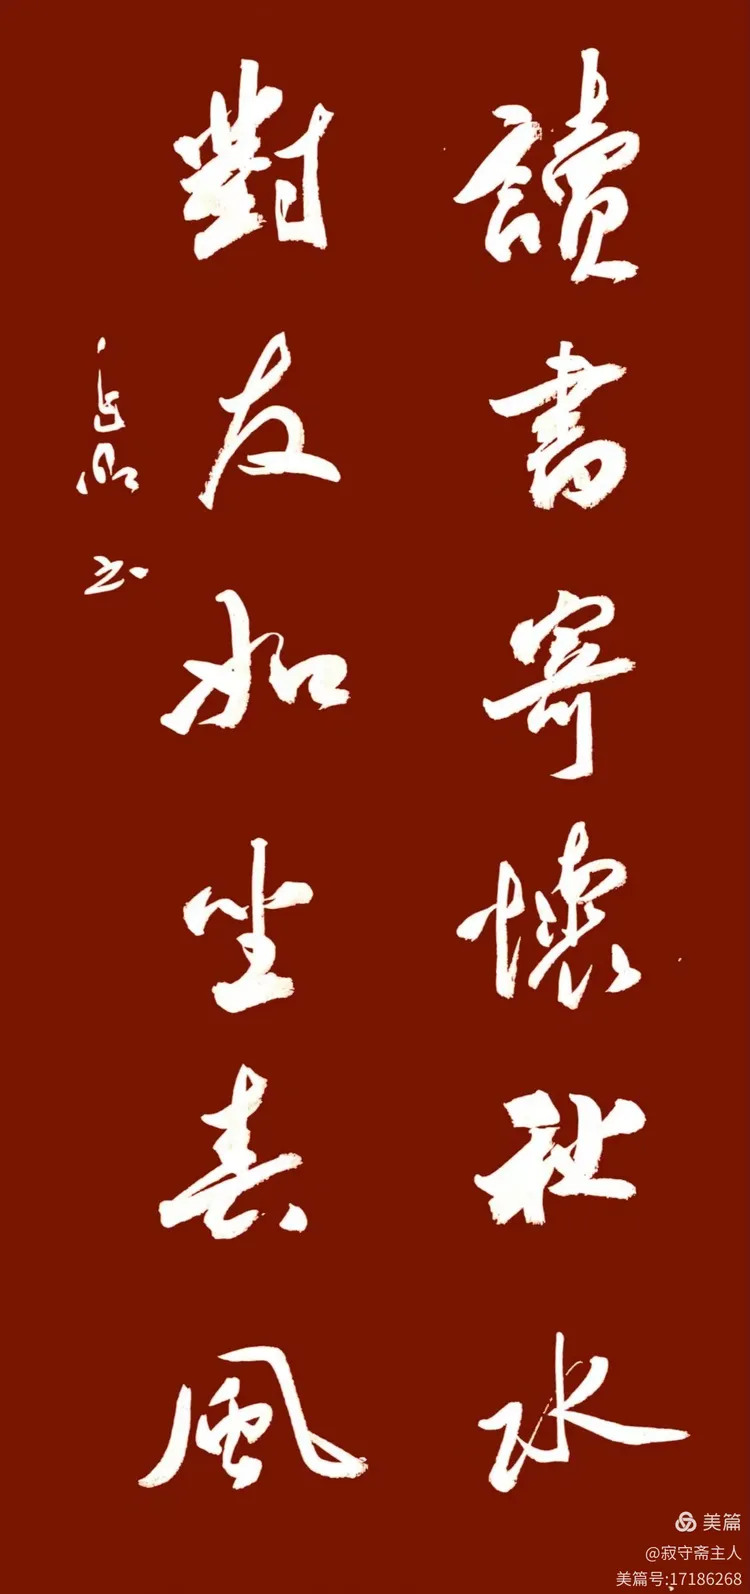 讀書寄懷秋水
對友如坐春風
书
美篇
@寂守斋主人
美篇号:17186268